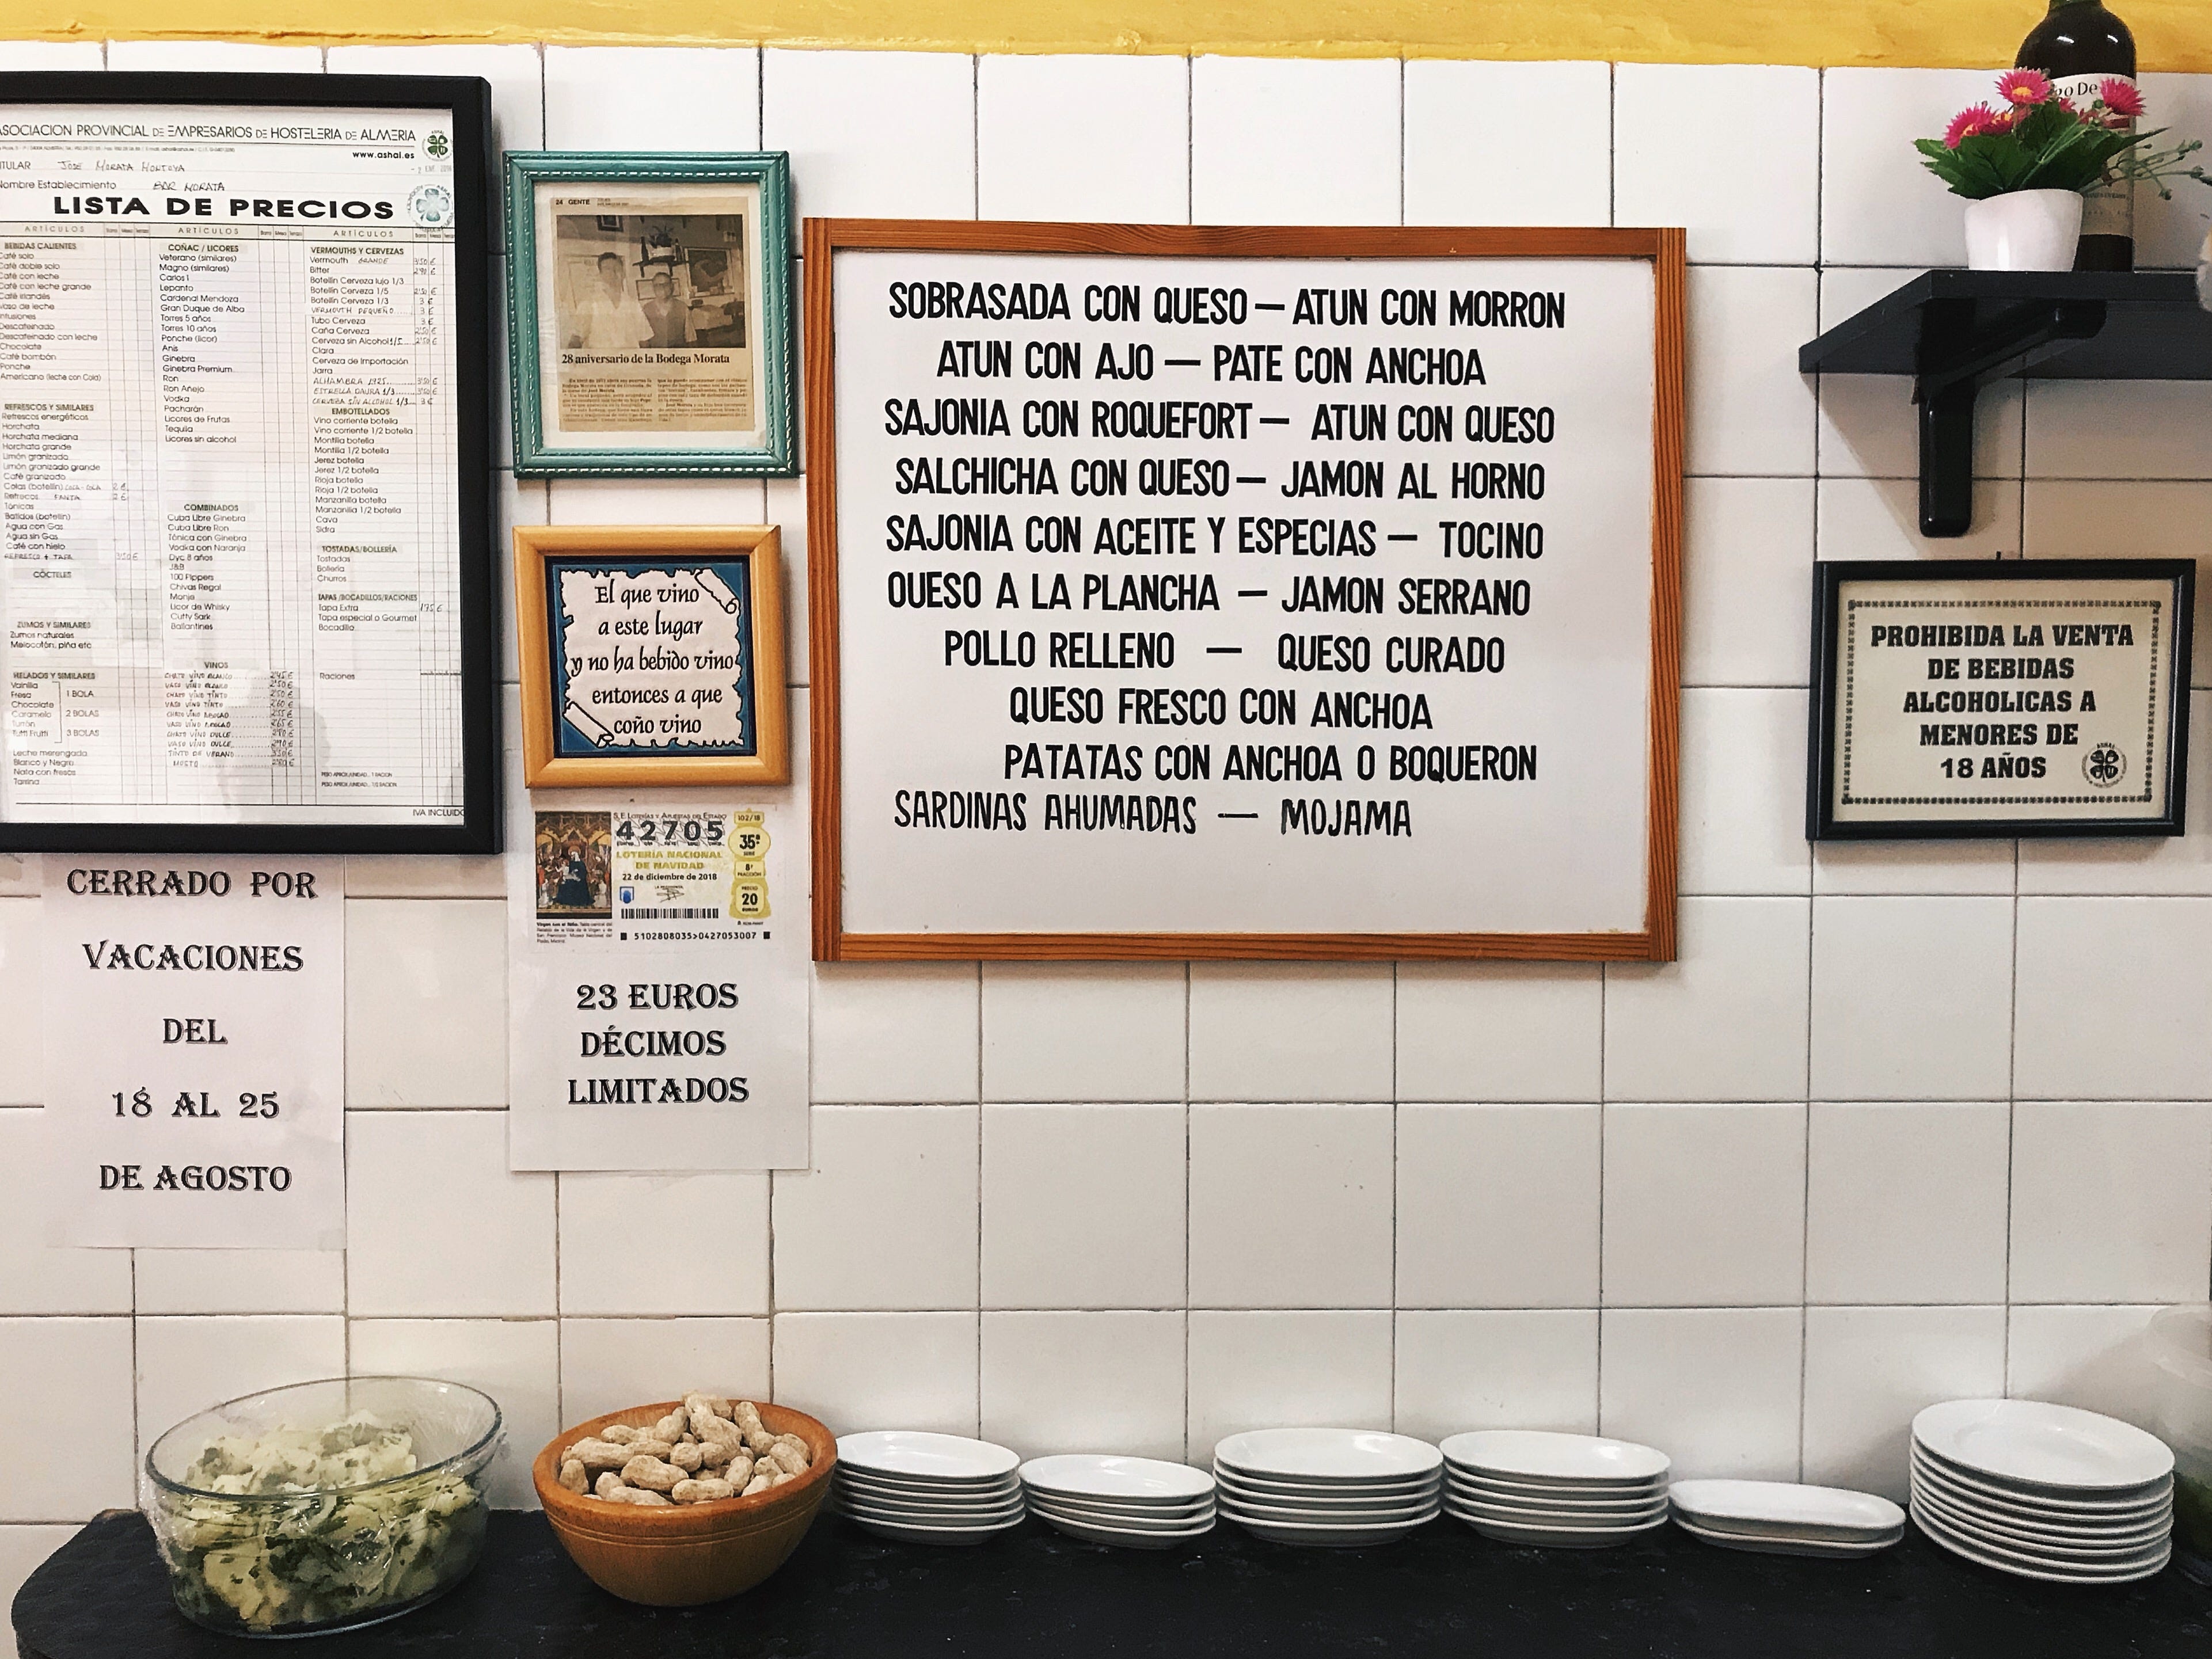 ASOCIACION PROVINCIAL DE EMPRESARIOS DE HOSTELERIA DE ALMERIA
www.ashal.es
TITULAR JOSE MORATA MONTOYA
Nombre Establecimiento BAR MORATA
LISTA DE PRECIOS
ARTÍCULOS
BEBIDAS CALIENTES
Café solo
Café doble solo
Café con leche
Café con leche grande
Café irlandés
Vaso de leche
Infusiones
Descafeinado
Descafeinado con leche
Chocolate
Café bombón
Ponche
Americano (leche con Cola)
REFRESCOS Y SIMILARES
Refrescos energéticos
Horchata
Horchata mediana
Horchata grande
Limón granizado
Limón granizado grande
Café granizado
Colas (botellín) COCA-COLA 2 €
Refrescos FANTA 2 €
Tónicas
Batidos (botellín)
Agua con Gas
Agua sin Gas
Café con hielo
REFRESCO + TAPA
CÓCTELES
ZUMOS Y SIMILARES
Zumos naturales
Melocotón, piña etc
HELADOS Y SIMILARES
Vainilla
Fresa 1 BOLA
Chocolate
Caramelo 2 BOLAS
Turrón
Tutti Frutti 3 BOLAS
Leche merengada
Blanco y Negro
Nata con fresas
Tarrina
ARTÍCULOS
COÑAC / LICORES
Veterano (similares)
Magno (similares)
Carlos I
Lepanto
Cardenal Mendoza
Gran Duque de Alba
Torres 5 años
Torres 10 años
Ponche (licor)
Anís
Ginebra
Ginebra Premium
Ron
Ron Añejo
Vodka
Pacharán
Licores de Frutas
Tequila
Licores sin alcohol
COMBINADOS
Cuba Libre Ginebra
Cuba Libre Ron
Tónica con Ginebra
Vodka con Naranja
Dyc 8 años
J&B
100 Pippers
Chivas Regal
Monje
Licor de Whisky
Cutty Sark
Ballantines
VINOS
CHATO VINO BLANCO
VASO VINO BLANCO
CHATO VINO TINTO
VASO VINO TINTO
VASO VINO DULCE
TINTO DE VERANO
MOSTO
ARTÍCULOS
VERMOUTHS Y CERVEZAS
Vermouth GRANDE
Bitter
Botellín Cerveza lujo 1/3
Botellín Cerveza 1/5
Botellín Cerveza 1/3 3 €
VERMOUTH PEQUEÑO 3 €
Tubo Cerveza 3 €
Caña Cerveza
Cerveza sin Alcohol 1/5
Clara
Cerveza de Importación
Jarra
ALHAMBRA 1925
ESTRELLA DAURA 1/3
CERVEZA SIN ALCOHOL 1/3 3 €
EMBOTELLADOS
Vino corriente botella
Vino corriente 1/2 botella
Montilla botella
Montilla 1/2 botella
Jerez botella
Jerez 1/2 botella
Rioja botella
Rioja 1/2 botella
Manzanilla botella
Manzanilla 1/2 botella
Cava
Sidra
TOSTADAS/BOLLERÍA
Tostadas
Bollería
Churros
TAPAS/BOCADILLOS/RACIONES
Tapa Extra
Tapa especial o Gourmet
Bocadillo
Raciones
IVA INCLUIDO
24 GENTE
28 aniversario de la Bodega Morata
El que vino
a este lugar
y no ha bebido vino
entonces a que
coño vino
S.E. LOTERÍAS Y APUESTAS DEL ESTADO
42705
LOTERÍA NACIONAL
DE NAVIDAD
22 de diciembre de 2018
102/18
35ª
8ª
FRACCIÓN
PRECIO
20
EUROS
5102808035>0427053007
23 EUROS
DÉCIMOS
LIMITADOS
CERRADO POR
VACACIONES
DEL
18 AL 25
DE AGOSTO
SOBRASADA CON QUESO — ATUN CON MORRON
ATUN CON AJO — PATE CON ANCHOA
SAJONIA CON ROQUEFORT — ATUN CON QUESO
SALCHICHA CON QUESO — JAMON AL HORNO
SAJONIA CON ACEITE Y ESPECIAS — TOCINO
QUESO A LA PLANCHA — JAMON SERRANO
POLLO RELLENO — QUESO CURADO
QUESO FRESCO CON ANCHOA
PATATAS CON ANCHOA O BOQUERON
SARDINAS AHUMADAS — MOJAMA
PROHIBIDA LA VENTA
DE BEBIDAS
ALCOHOLICAS A
MENORES DE
18 AÑOS
ASHAL